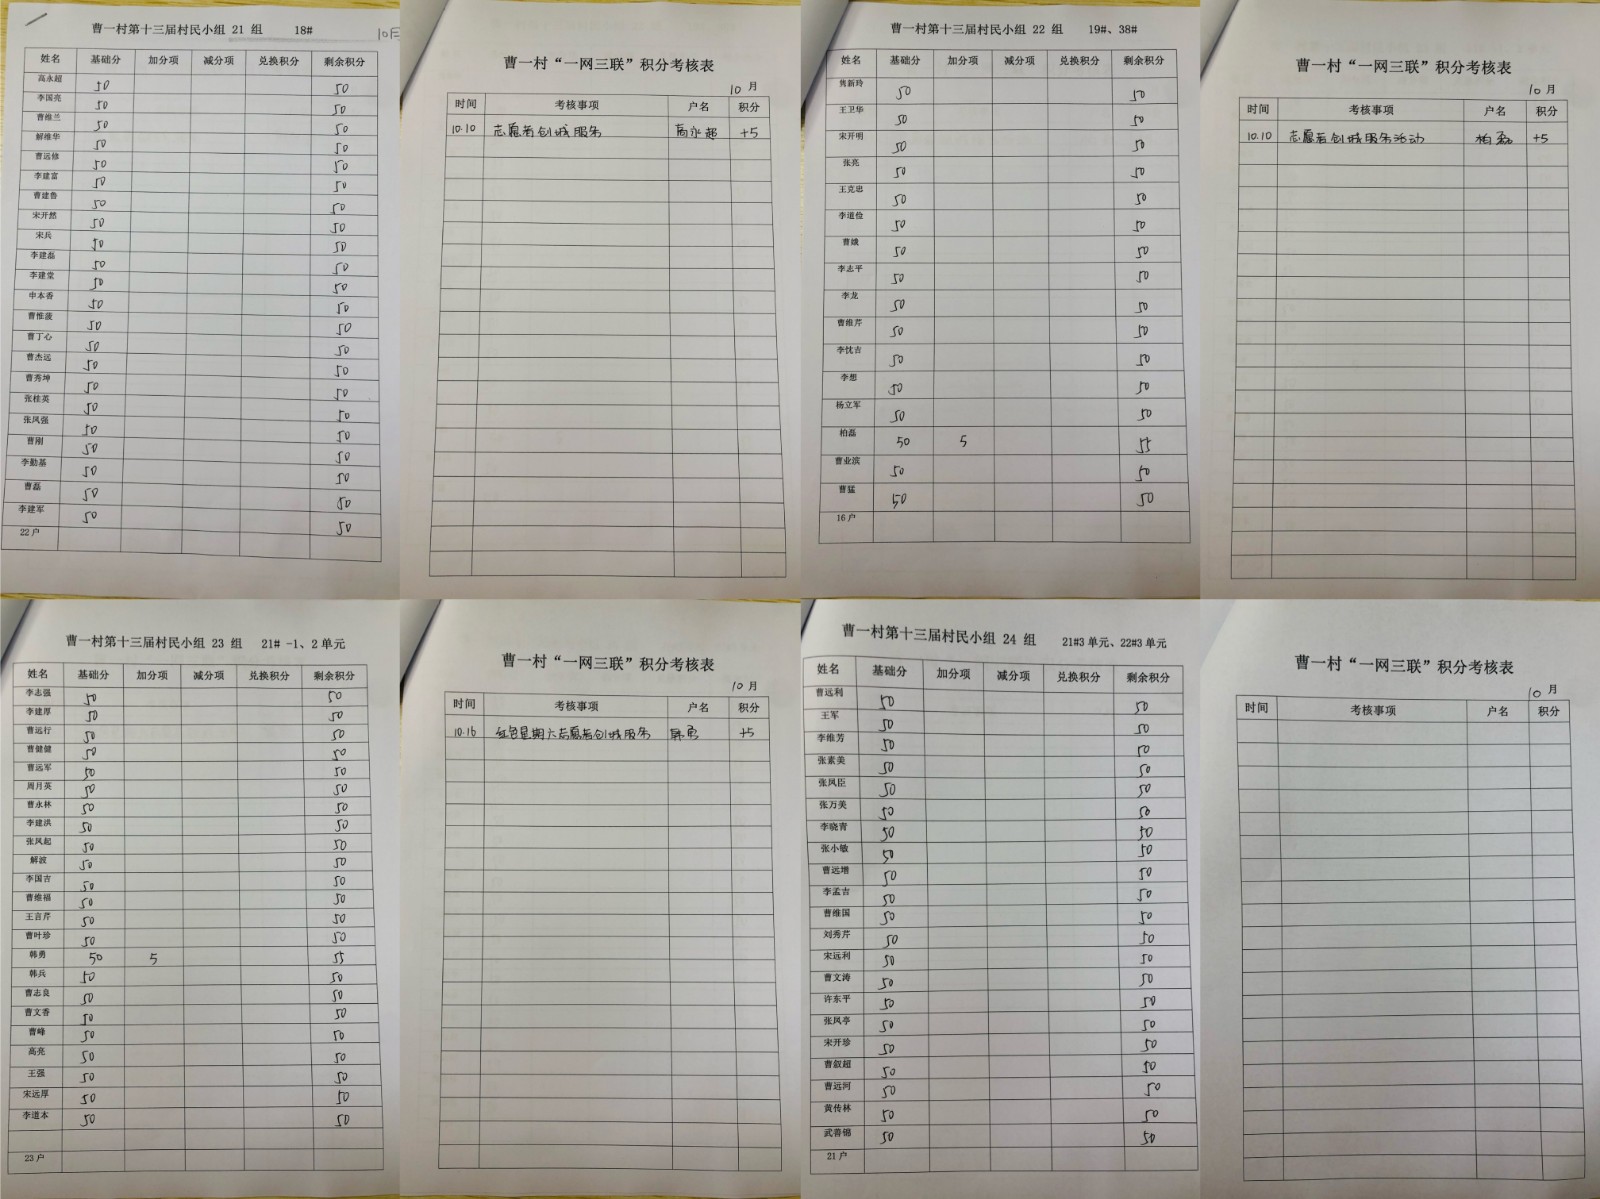 曹一村第十三届村民小组 21 组 18#
10日
姓名 基础分 加分项 减分项 兑换积分 剩余积分
高永超 50 50
李国亮 50 50
曹维兰 50 50
解维华 50 50
曹远修 50 50
李建富 50 50
曹建鲁 50 50
宋开然 50 50
宋兵 50 50
李建磊 50 50
李建堂 50 50
申本香 50 50
曹惟菠 50 50
曹丁心 50 50
曹杰远 50 50
曹秀坤 50 50
张桂英 50 50
张凤强 50 50
曹刚 50 50
李勤基 50 50
曹磊 50 50
李建军 50 50
22户
曹一村“一网三联”积分考核表
10 月
时间 考核事项 户名 积分
10.10 志愿者创城服务 高永超 +5
曹一村第十三届村民小组 22 组 19#、38#
姓名 基础分 加分项 减分项 兑换积分 剩余积分
隽新玲 50 50
王卫华 50 50
宋开明 50 50
张亮 50 50
王克忠 50 50
李道俭 50 50
曹娥 50 50
李志平 50 50
李龙 50 50
曹维芹 50 50
李忱吉 50 50
李想 50 50
杨立军 50 50
柏磊 50 5 55
曹业滨 50 50
曹猛 50 50
16户
曹一村“一网三联”积分考核表
10 月
时间 考核事项 户名 积分
10.10 志愿者创城服务活动 柏磊 +5
曹一村第十三届村民小组 23 组 21# -1、2单元
姓名 基础分 加分项 减分项 兑换积分 剩余积分
李志强 50 50
李建厚 50 50
曹远行 50 50
曹健健 50 50
曹远军 50 50
周月英 50 50
曹永林 50 50
李建洪 50 50
张凤起 50 50
解波 50 50
李国吉 50 50
曹维福 50 50
王言芹 50 50
曹叶珍 50 50
韩勇 50 5 55
韩兵 50 50
曹志良 50 50
曹文香 50 50
曹峰 50 50
高亮 50 50
王强 50 50
宋远厚 50 50
李道本 50 50
23户
曹一村“一网三联”积分考核表
10 月
时间 考核事项 户名 积分
10.16 红色星期六志愿者创城服务 韩勇 +5
曹一村第十三届村民小组 24 组 21#3单元、22#3单元
姓名 基础分 加分项 减分项 兑换积分 剩余积分
曹远利 50 50
王军 50 50
李维芳 50 50
张素美 50 50
张凤臣 50 50
张万美 50 50
李晓青 50 50
张小敏 50 50
曹远增 50 50
李孟吉 50 50
曹维国 50 50
刘秀芹 50 50
宋远利 50 50
曹文涛 50 50
许东平 50 50
张凤亭 50 50
宋开珍 50 50
曹叙超 50 50
曹远河 50 50
黄传林 50 50
武善锦 50 50
21户
曹一村“一网三联”积分考核表
10 月
时间 考核事项 户名 积分